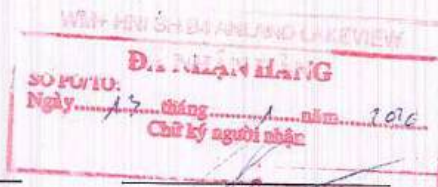 WM+ HNI SH B4 ANLAND LAKEVIEW
ĐÃ NHẬN HÀNG
SỐ PO/TO:
Ngày 17 tháng 1 năm 2026
Chữ ký người nhận